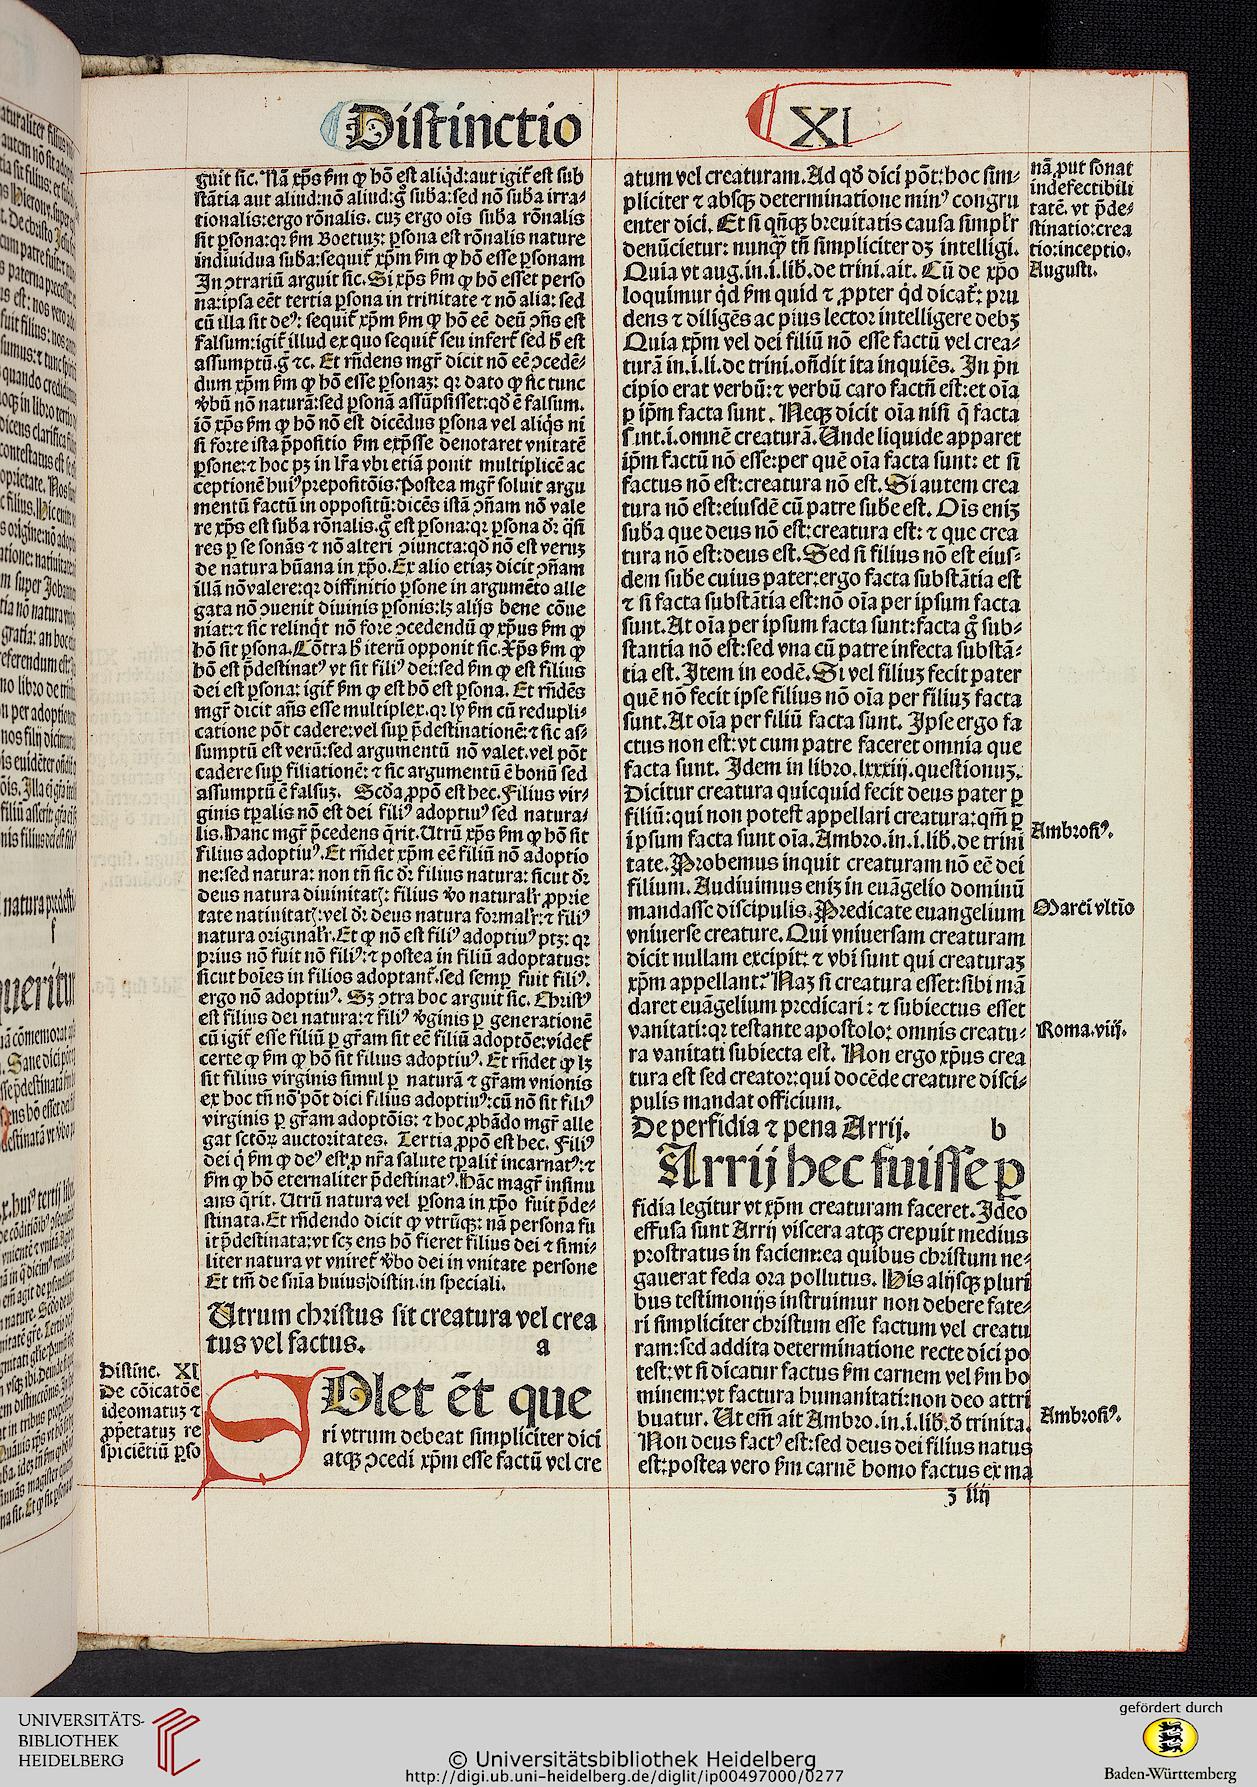 Distinctio
XI
guit sic. Nã xp̃s ẜm ꝙ hõ est aliqd: aut igit̃ est sub
stãtia aut aliud: nõ aliud: gͦ suba: sed nõ suba irra-
tionalis: ergo rõnalis. cuz ergo oĩs suba rõnalis
sit ꝑsona: qꝛ ẜm Boetiuz: ꝑsona est rõnalis nature
indiuidua suba: sequit̃ xp̃m ẜm ꝙ hõ esse ꝑsonam
In ↄtrariũ arguit sic. Si xp̃s ẜm ꝙ hõ esset perso
na: ipsa eẽt tertia ꝑsona in trinitate ⁊ nõ alia: sed
cũ illa sit deꝰ: sequit̃ xp̃m ẜm ꝙ hõ eẽ deũ ↄ̃ñs est
falsum: igit̃ illud ex quo sequit̃ seu infert̃ sed h̃ est
assumptũ. gͦ ⁊c. Et rñdens mgr̃ dicit nõ eẽ ↄcedẽ-
dum xp̃m ẜm ꝙ hõ esse ꝑsonaz: qꝛ dato ꝙ sic tunc
v̾bũ nõ naturã: sed ꝑsonã assũpsisset: qd̃ ẽ falsum.
iõ xp̃s ẜm ꝙ hõ nõ est dicẽdus ꝑsona vel aliqs ni
si forte ista ꝓpositio ẜm exp̃sse denotaret vnitatẽ
ꝑsone: ⁊ hoc pꝫ in lr̃a vbi etiã ponit multiplicẽ ac
ceptionẽ huiꝰ prepositõis. Postea mgr̃ soluit argu
mentũ factũ in oppositũ: dicẽs istã ↄ̃ñam nõ vale
re xp̃s est suba rõnalis. gͦ est ꝑsona: qꝛ ꝑsona dr̃ q̃si
res ꝑ se sonãs ⁊ nõ alteri ↄiuncta: qd̃ nõ est veruz
de natura hũana in xp̃o. Ex alio etiaz dicit ↄ̃ñam
illã nõ valere: qꝛ diffinitio ꝑsone in argumẽto alle
gata nõ ↄuenit diuinis ꝑsonis: lꝫ alijs bene cõue
niat: ⁊ sic relinqt̃ nõ fore ↄcedendũ ꝙ xp̃us ẜm ꝙ
hõ sit ꝑsona. Cõtra h̃ iterũ opponit sic. Xp̃s ẜm ꝙ
hõ est p̃destinatꝰ vt sit filiꝰ dei: sed ẜm ꝙ est filius
dei est ꝑsona: igit̃ ẜm ꝙ est hõ est ꝑsona. Et rñdẽs
mgr̃ dicit añs esse multiplex. qꝛ ly ẜm cũ redupli-
catione põt cadere: vel sup̃ p̃destinationẽ: ⁊ sic as-
sumptũ est verũ: sed argumentũ nõ valet. vel põt
cadere sup̃ filiationẽ: ⁊ sic argumentũ ẽ bonũ sed
assumptũ ẽ falsuz. Scd̃a ꝓpõ est hec. Filius vir-
ginis tp̃alis nõ est dei filiꝰ adoptiuꝰ sed natura-
lis. Hanc mgr̃ p̃cedens q̃rit. Utrũ xp̃s ẜm ꝙ hõ sit
filius adoptiuꝰ. Et rñdet xp̃m eẽ filiũ nõ adoptio
ne: sed natura: non tñ sic dr̃ filius natura: sicut dr̃
deus natura diuinitatꝭ: filius v̾o naturalr̃ ꝓprie
tate natiuitatꝭ: vel dr̃ deus natura formalr̃: ⁊ filiꝰ
natura originalr̃. Et ꝙ nõ est filiꝰ adoptiuꝰ ptꝫ: qꝛ
prius nõ fuit nõ filiꝰ: ⁊ postea in filiũ adoptatus:
sicut hoĩes in filios adoptant̃. sed semꝑ fuit filiꝰ.
ergo nõ adoptiuꝰ. Sꝫ ↄtra hoc arguit sic. Christꝰ
est filius dei natura: ⁊ filiꝰ v̾ginis ꝑ generationẽ
cũ igit̃ esse filiũ ꝑ gr̃am sit eẽ filiũ adoptõe: videt̃
certe ꝙ ẜm ꝙ hõ sit filius adoptiuꝰ. Et rñdet ꝙ lꝫ
sit filius virginis simul ꝑ naturã ⁊ gr̃am vnionis
ex hoc tñ nõ põt dici filius adoptiuꝰ: cũ nõ sit filiꝰ
virginis ꝑ gr̃am adoptõis: ⁊ hoc ꝓbãdo mgr̃ alle
gat sctõꝝ auctoritates. Tertia ꝓpõ est hec. Filiꝰ
dei q̃ ẜm ꝙ deꝰ est, ꝑ nr̃a salute tp̃alit̃ incarnatꝰ: ⁊
ẜm ꝙ hõ eternaliter p̃destinatꝰ. Hãc magr̃ insinu
ans q̃rit. Utrũ natura vel ꝑsona in xp̃o fuit p̃de-
stinata. Et rñdendo dicit ꝙ vtrũqꝫ: nã persona fu
it p̃destinata: vt scꝫ ens hõ fieret filius dei ⁊ simi-
liter natura vt vniret̃ v̾bo dei in vnitate persone
Et tm̃ de sñia huius distin. in speciali.
Utrum christus sit creatura vel crea
tus vel factus. a
Distinc. XI
De cõicatõe
ideomatuz ⁊
ꝓp̃etatuz re
spiciẽtiũ ꝑso
SOlet ẽt que
ri vtrum debeat simpliciter dici
atqꝫ ↄcedi xp̃m esse factũ vel cre
atum vel creaturam. Ad qd̃ dici põt: hoc sim-
pliciter ⁊ absqꝫ determinatione minꝰ congru
enter dici. Et si qñqꝫ breuitatis causa simplr̃
denũcietur: nunq̃ tñ simpliciter dꝫ intelligi.
Quia vt aug. in. i. lib. de trini. ait. Cũ de xp̃o
loquimur qd̃ ẜm quid ⁊ ꝓpter qd̃ dicat̃: pru
dens ⁊ diligẽs ac pius lector intelligere debꝫ
Quia xp̃m vel dei filiũ nõ esse factũ vel crea-
turã in. i. li. de trini. oñdit ita inquiẽs. In p̃n
cipio erat verbũ: ⁊ verbũ caro factũ est: et oĩa
ꝑ ip̃m facta sunt. Neqꝫ dicit oĩa nisi q̃ facta
sint. i. omnẽ creaturã. Unde liquide apparet
ip̃m factũ nõ esse: per quẽ oĩa facta sunt: et si
factus nõ est: creatura nõ est. Si autem crea
tura nõ est: eiusdẽ cũ patre sube est. Oĩs eniz
suba que deus nõ est: creatura est: ⁊ que crea
tura nõ est: deus est. Sed si filius nõ est eius-
dem sube cuius pater: ergo facta substãtia est
⁊ si facta substãtia est: nõ oĩa per ipsum facta
sunt. At oĩa per ipsum facta sunt: facta gͦ sub-
stantia nõ est: sed vna cũ patre infecta substã-
tia est. Item in eodẽ. Si vel filiuz fecit pater
quẽ nõ fecit ipse filius nõ oĩa per filiuz facta
sunt. At oĩa per filiũ facta sunt. Ipse ergo fa
ctus non est: vt cum patre faceret omnia que
facta sunt. Idem in libro. lxxxiij. questionuz.
Dicitur creatura quicquid fecit deus pater ꝑ
filiũ: qui non potest appellari creatura: qm̃ ꝑ
ipsum facta sunt oĩa. Ambro. in. i. lib. de trini
tate. Probemus inquit creaturam nõ eẽ dei
filium. Audiuimus eniz in euãgelio dominũ
mandasse discipulis. Predicate euangelium
vniuerse creature. Qui vniuersam creaturam
dicit nullam excipit: ⁊ vbi sunt qui creaturaz
xp̃m appellant? Naz si creatura esset: sibi mã
daret euãgelium predicari: ⁊ subiectus esset
vanitati: qꝛ testante apostolo: omnis creatu-
ra vanitati subiecta est. Non ergo xp̃us crea
tura est sed creator: qui docẽde creature disci-
pulis mandat officium.
De perfidia ⁊ pena Arrij. b
Arrij hec fuisse ꝑ
fidia legitur vt xp̃m creaturam faceret. Ideo
effusa sunt Arrij viscera atqꝫ crepuit medius
prostratus in faciem: ea quibus christum ne-
gauerat feda ora pollutus. His alijsqꝫ pluri
bus testimonijs instruimur non debere fate-
ri simpliciter christum esse factum vel creatu
ram: sed addita determinatione recte dici po
test: vt si dicatur factus ẜm carnem vel ẜm ho
minem: vt factura humanitati: non deo attri
buatur. Ut em̃ ait Ambro. in. i. lib. d̾ trinita.
Non deus factꝰ est: sed deus dei filius natus
est: postea vero ẜm carnẽ homo factus ex ma
z iiij
nã ꝓut sonat
indefectibili
tatẽ. vt p̃de-
stinatio: crea
tio: inceptio.
Augusti.
Ambrosiꝰ.
Marci vltĩo
Roma. viij.
Ambrosiꝰ.
UNIVERSITÄTS-
BIBLIOTHEK
HEIDELBERG
© Universitätsbibliothek Heidelberg
http://digi.ub.uni-heidelberg.de/diglit/ip00497000/0277
gefördert durch
Baden-Württemberg